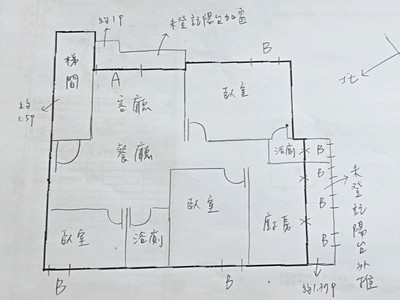 約1P
未登記陽台外推
梯間
A
B
北
約
1.5P
客廳
臥室
餐廳
浴廁
B
B
B
B
未登記陽台外推
臥室
浴廁
臥室
廚房
B
B
約1.77P